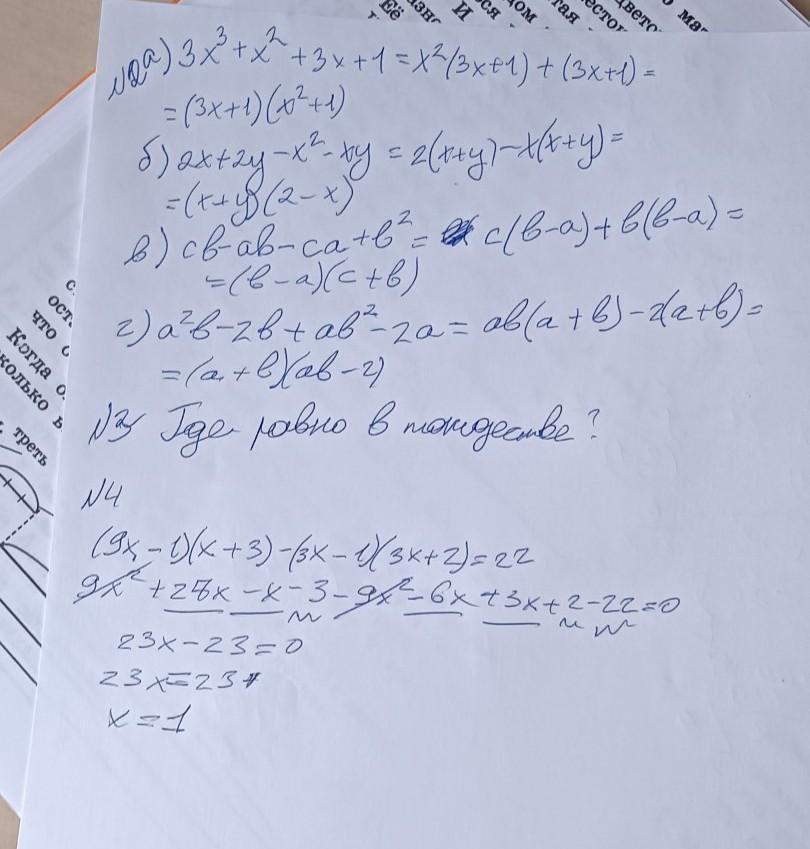 Её
И
N2 а) 3x³ + x² + 3x + 1 = x²(3x+1) + (3x+1) =
= (3x+1)(x²+1)
б) 2x+2y-x²-xy = 2(x+y)-x(x+y) =
= (x+y)(2-x)
в) cb-ab-ca+b² = c(b-a)+b(b-a) =
= (b-a)(c+b)
г) a²b-2b+ab²-2a = ab(a+b)-2(a+b) =
= (a+b)(ab-2)
N3 Где равно в тождестве?
N4
(9x-1)(x+3)-(3x-1)(3x+2)=22
9x²+27x-x-3-9x²-6x+3x+2-22=0
23x-23=0
23x=23
x=1
ост
что
Когда о
колько в
треть